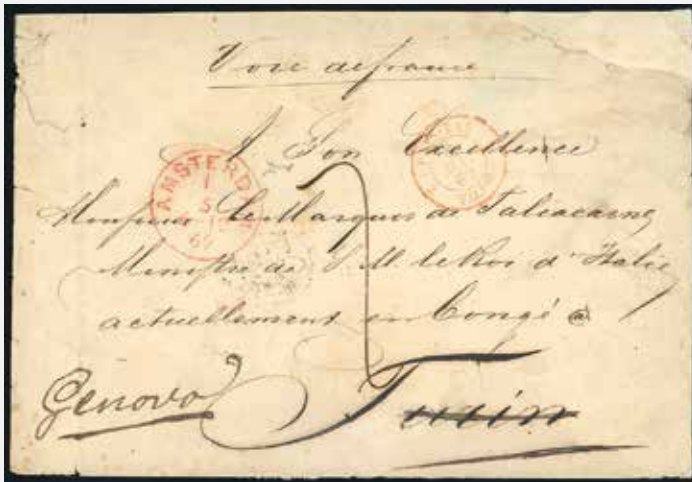 Voie de france
A Son Excellence
AMSTERDAM
Monsieur le Marquis de
Ministre de S. M. le Roi d'Italie
actuellement en Congé à
Genova
Turin